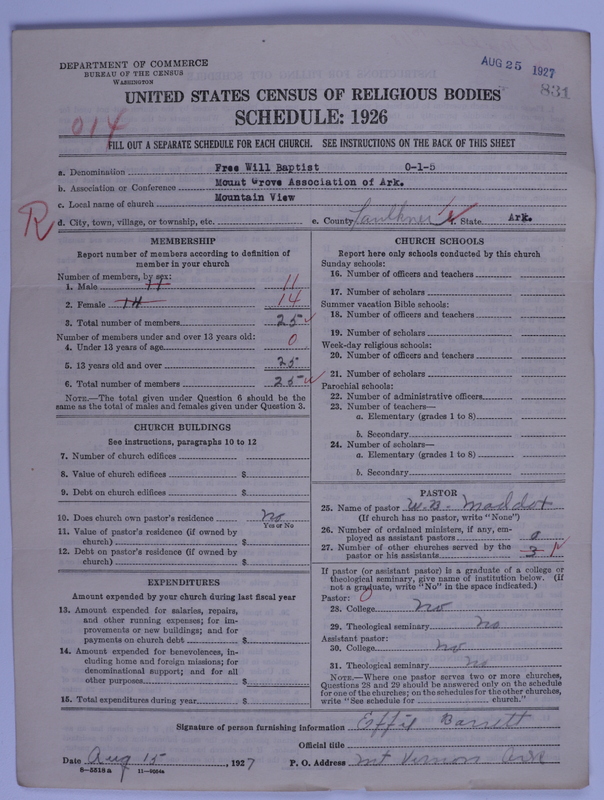 DEPARTMENT OF COMMERCE
BUREAU OF THE CENSUS
WASHINGTON
AUG 25 1927
831
UNITED STATES CENSUS OF RELIGIOUS BODIES
SCHEDULE: 1926
014
FILL OUT A SEPARATE SCHEDULE FOR EACH CHURCH. SEE INSTRUCTIONS ON THE BACK OF THIS SHEET
a. Denomination Free Will Baptist 0-1-5
b. Association or Conference Mount Grove Association of Ark.
c. Local name of church Mountain View
R
d. City, town, village, or township, etc. e. County Faulkner f. State Ark.
MEMBERSHIP
Report number of members according to definition of
member in your church
Number of members, by sex:
1. Male 11 11
2. Female 14 14
3. Total number of members 25
Number of members under and over 13 years old:
4. Under 13 years of age 0
5. 13 years old and over 25
6. Total number of members 25
NOTE.—The total given under Question 6 should be
same as the total of males and females given under Question 3.
CHURCH BUILDINGS
See instructions, paragraphs 10 to 12
7. Number of church edifices
8. Value of church edifices $
9. Debt on church edifices $
10. Does church own pastor's residence No
Yes or No
11. Value of pastor's residence (if owned by
church) $
12. Debt on pastor's residence (if owned by
church) $
EXPENDITURES
Amount expended by your church during last fiscal year
13. Amount expended for salaries, repairs,
and other running expenses; for im-
provements or new buildings; and for
payments on church debt $
14. Amount expended for benevolences, in-
cluding home and foreign missions; for
denominational support; and for all
other purposes $
15. Total expenditures during year $
CHURCH SCHOOLS
Report here only schools conducted by this church
Sunday schools:
16. Number of officers and teachers
17. Number of scholars
Summer vacation Bible schools:
18. Number of officers and teachers
19. Number of scholars
Week-day religious schools:
20. Number of officers and teachers
21. Number of scholars
Parochial schools:
22. Number of administrative officers
23. Number of teachers—
a. Elementary (grades 1 to 8)
b. Secondary
24. Number of scholars—
a. Elementary (grades 1 to 8)
b. Secondary
PASTOR
25. Name of pastor W. B. Maddox
(If church has no pastor, write "None")
26. Number of ordained ministers, if any, em-
ployed as assistant pastors 0
27. Number of other churches served by the
pastor or his assistants 3 1
If pastor (or assistant pastor) is a graduate of a college or
theological seminary, give name of institution below. (If
not a graduate, write "No" in the space indicated.)
Pastor: 0
28. College No
29. Theological seminary No
Assistant pastor:
30. College No
31. Theological seminary No
NOTE.—Where one pastor serves two or more churches,
Questions 28 and 29 should be answered only on the schedule
for one of the churches; on the schedules for the other churches,
write "See schedule for church."
Signature of person furnishing information Effie Barrett
Official title
Date Aug 15, 1927 P. O. Address Mt Vernon Ark
8-5518a 11-9064a